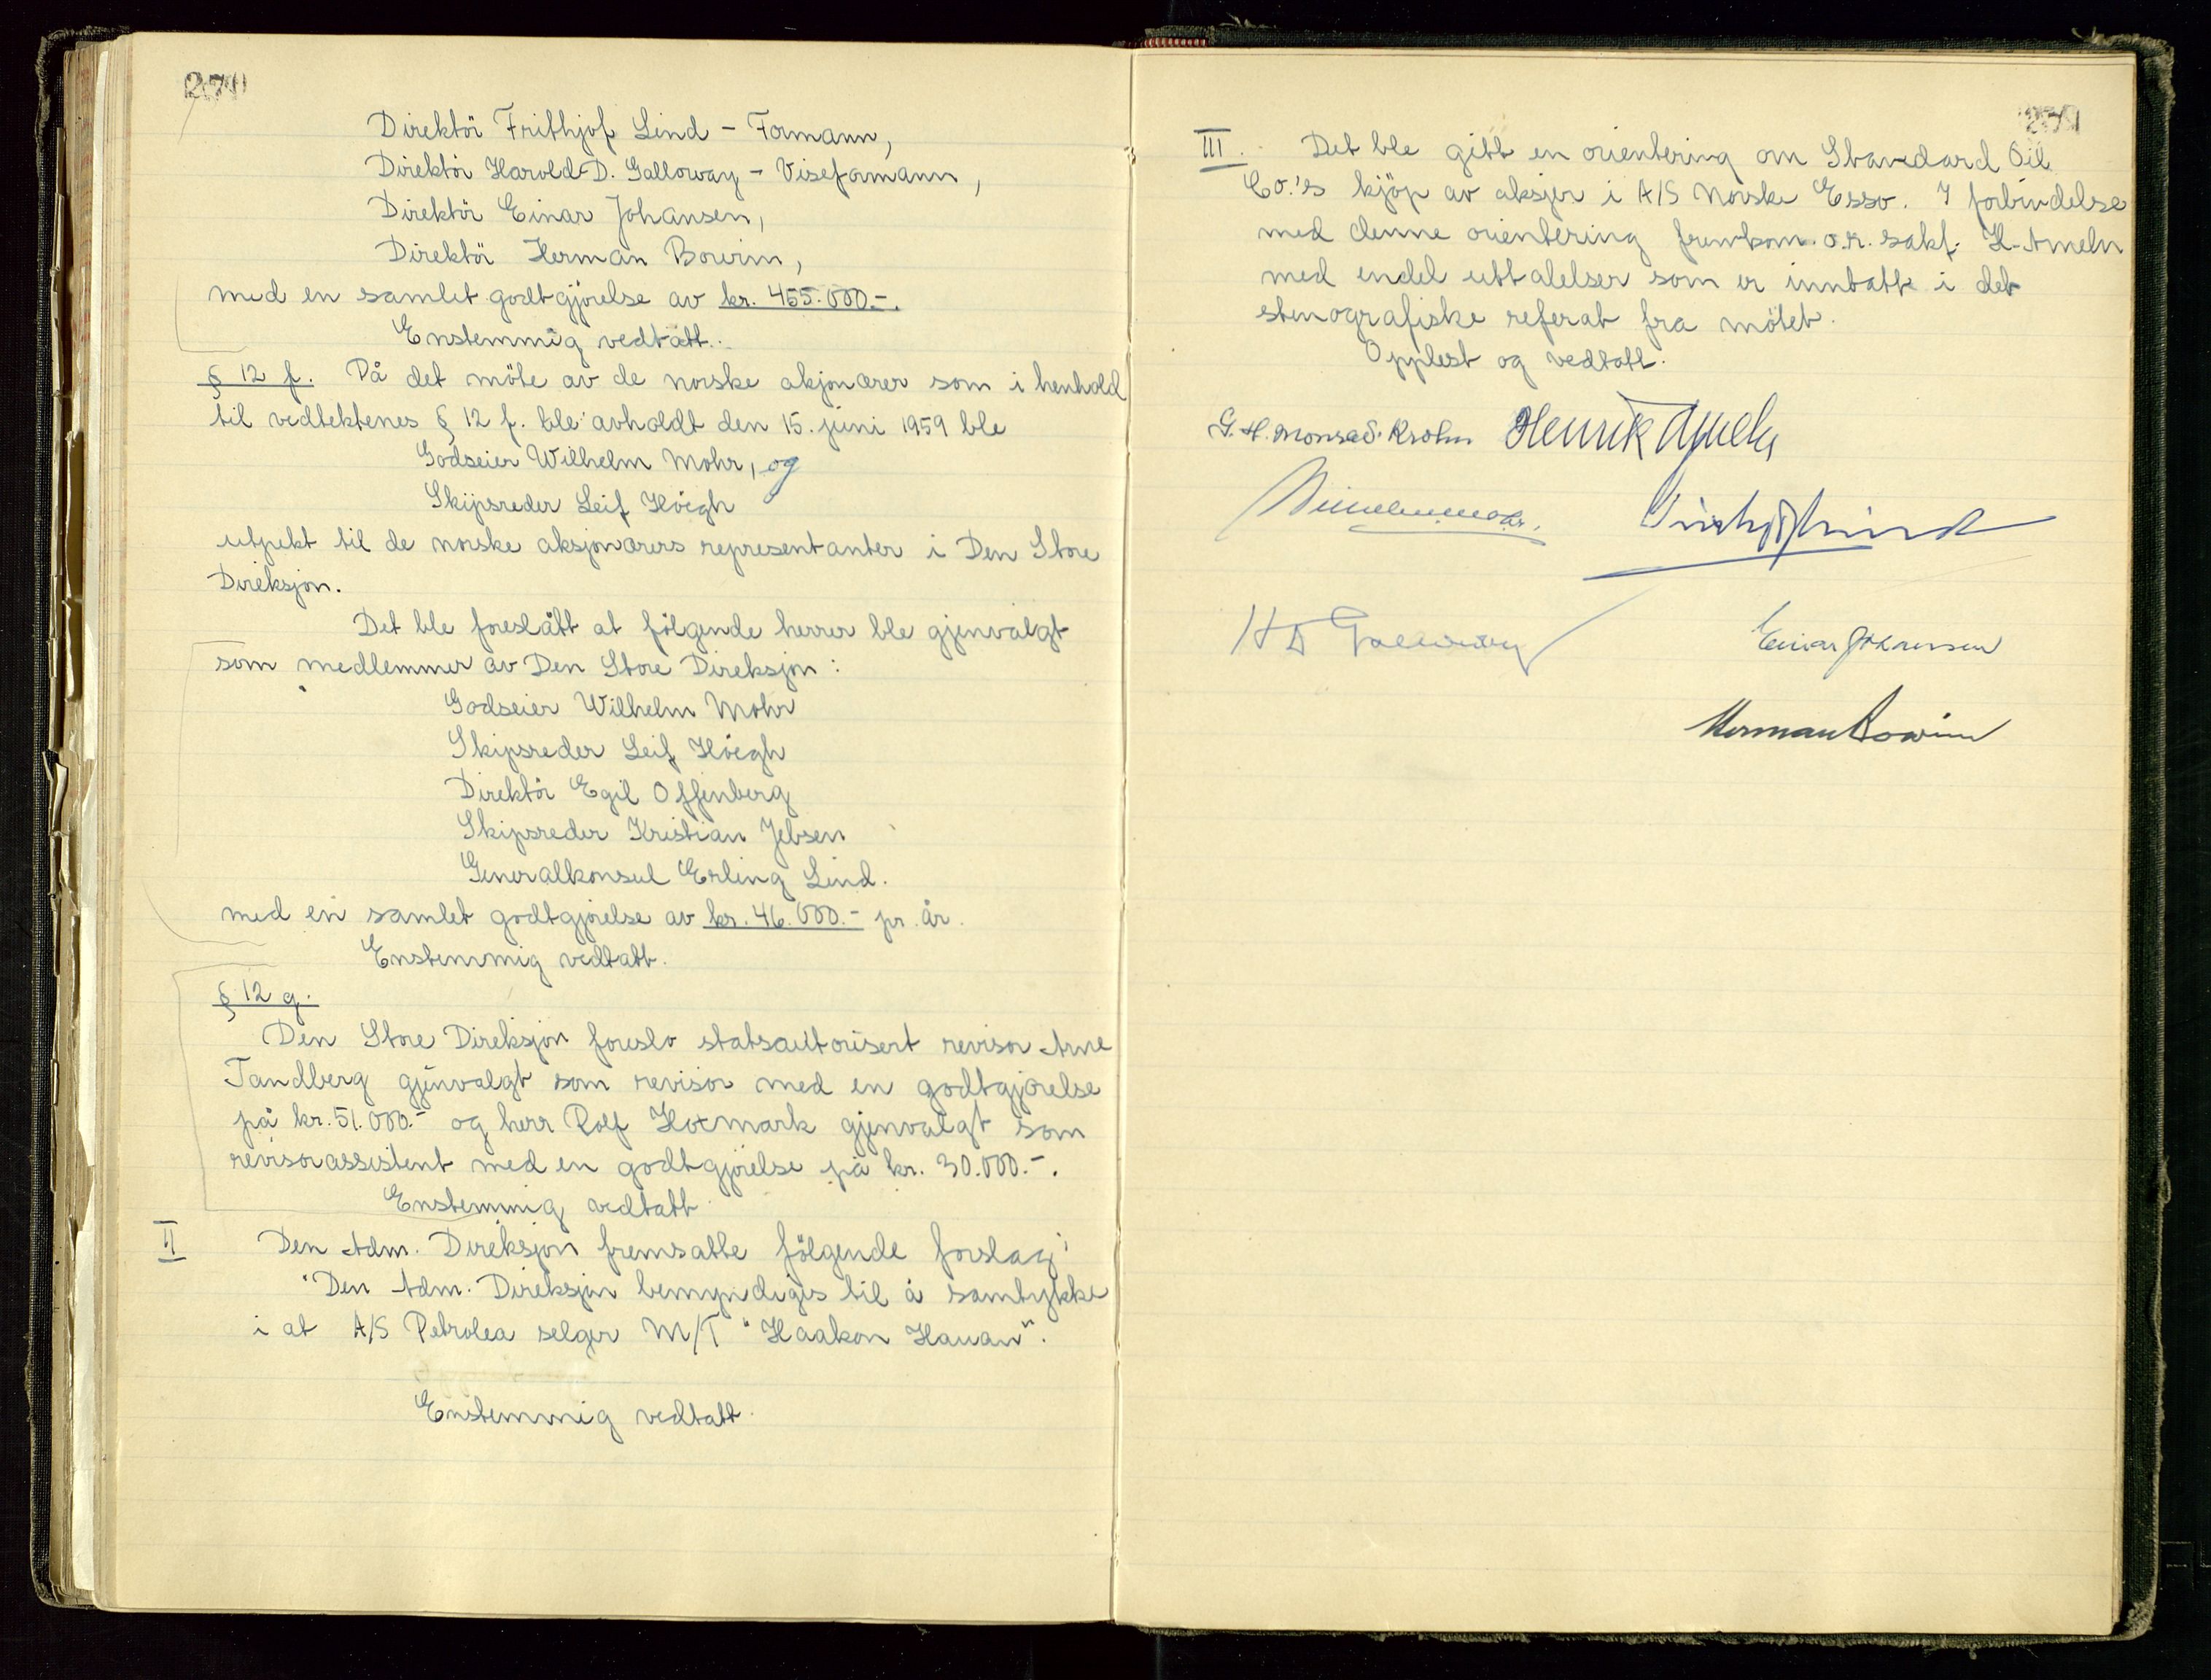 270
Direktör Frithjof Lind - Formann,
Direktör Harold D. Galloway - Viseformann,
Direktör Einar Johansen,
Direktör Herman Bowim,
med en samlet godtgjörelse av kr. 455.000.-.
Enstemmig vedtatt.
§ 12 f. På det möte av de norske akjonærer som i henhold
til vedtektenes § 12 f. ble avholdt den 15. juni 1959 ble
Godseier Wilhelm Mohr, og
Skipsreder Leif Höegh
utpekt til de norske aksjonærers representanter i Den Store
Direksjon.
Det ble foreslått at fölgende herrer ble gjenvalgt
som medlemmer av Den Store Direksjon:
Godseier Wilhelm Mohr
Skipsreder Leif Höegh
Direktör Egil Offenberg
Skipsreder Kristian Jebsen
Generalkonsul Erling Lind.
med en samlet godtgjörelse av kr. 46.000.- pr. år.
Enstemmig vedtatt.
§ 12 g.
Den Store Direksjon foreslo statsautorisert revisor Arne
Tandberg gjenvalgt som revisor med en godtgjörelse
på kr. 51.000.- og herr Rolf Hotmark gjenvalgt som
revisorassistent med en godtgjörelse på kr. 30.000.-.
Enstemmig vedtatt
II Den Adm. Direksjon fremsatte fölgende forslag:
"Den Adm. Direksjon bemyndiges til å samtykke
i at A/S Petrolea selger M/T "Haakon Hauan".
Enstemmig vedtatt.
271
III. Det ble gitt en orientering om Standard Oil
Co.'s kjöp av aksjer i A/S Norske Esso. I forbindelse
med denne orientering fremkom o.r. sakf. H. Ameln
med endel uttalelser som er inntatt i det
stenografiske referat fra mötet.
Opplest og vedtatt.
G. H. Monrad-Krohn Henrik Ameln
Wilhelm Mohr. Frithjof Lind
H D Galloway Einar Johansen
Herman Bowim